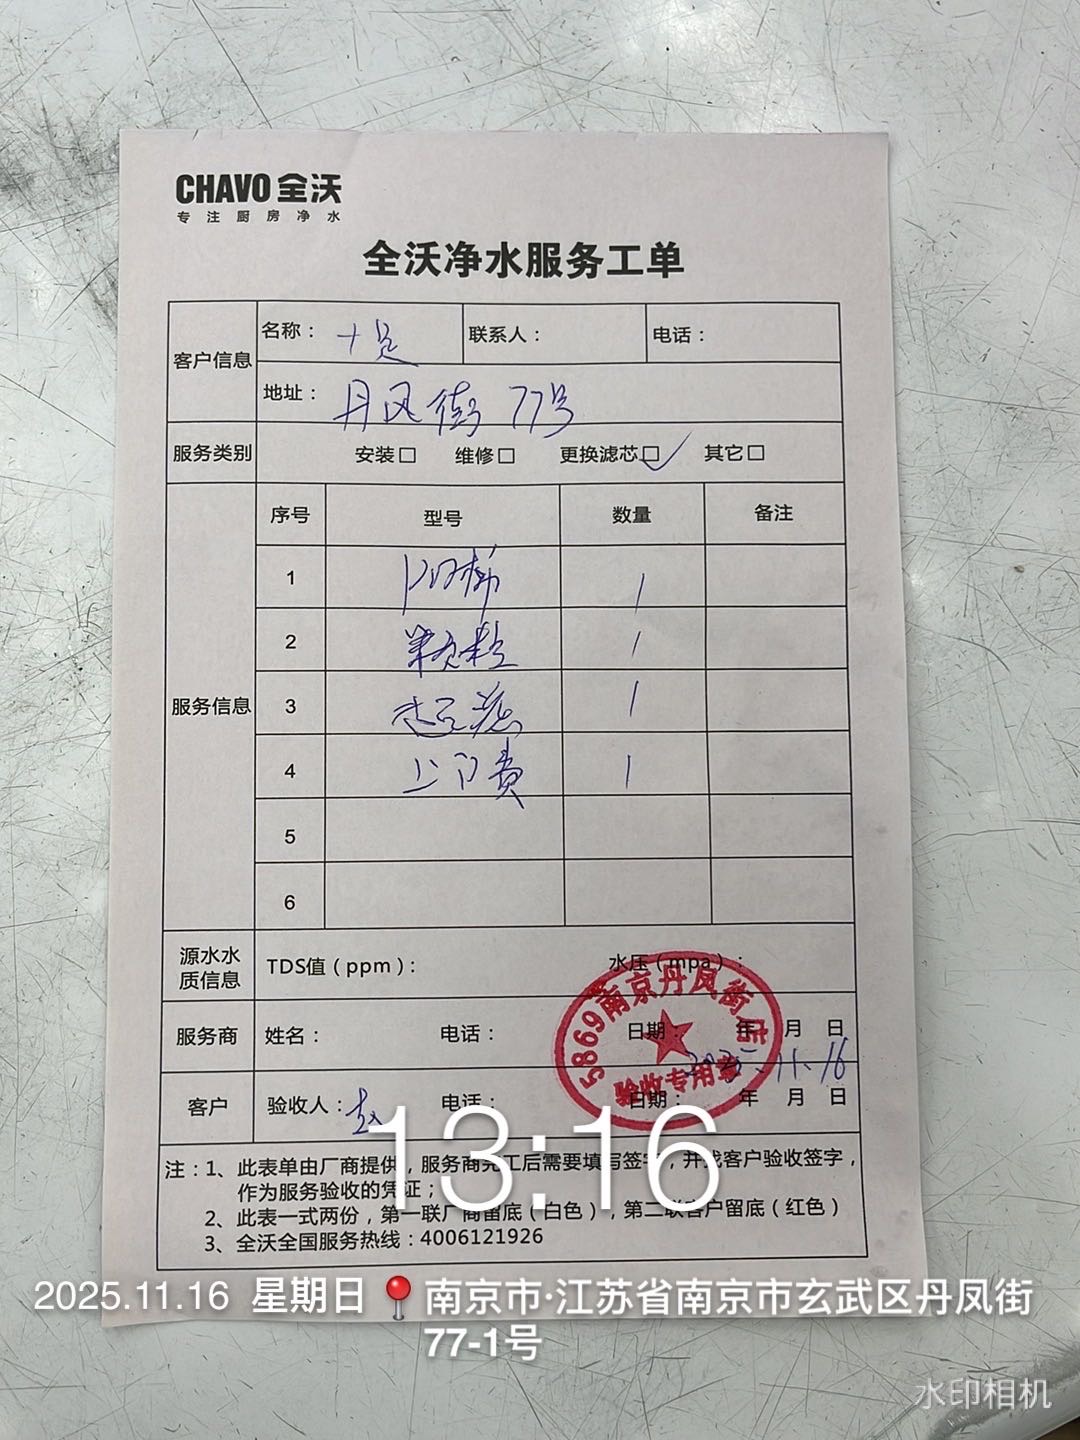 CHAVO 全沃
专注厨房净水
全沃净水服务工单
客户信息
名称：
联系人：
电话：
地址：丹凤街 77号
服务类别
安装□ 维修□ 更换滤芯□✓ 其它□
服务信息
序号 型号 数量 备注
1 1
2 颗粒 1
3 1
4 上门费 1
5
6
源水水质信息
TDS值（ppm）： 水压（mpa）：
服务商 姓名： 电话： 日期： 年 月 日
2025.11.16
客户 验收人：赵 电话： 日期： 年 月 日
5869南京丹凤街店
验收专用章
注：1、此表单由厂商提供，服务商完工后需要填写签字，并找客户验收签字，
作为服务验收的凭证；
2、此表一式两份，第一联厂商留底（白色），第二联客户留底（红色）
3、全沃全国服务热线：4006121926
13:16
2025.11.16 星期日 南京市·江苏省南京市玄武区丹凤街
77-1号
水印相机